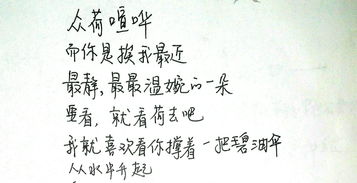 众荷喧哗
而你是挨我最近
最静,最最温婉的一朵
要看,就看荷去吧
我就喜欢看你撑着一把碧油伞
从水中升起